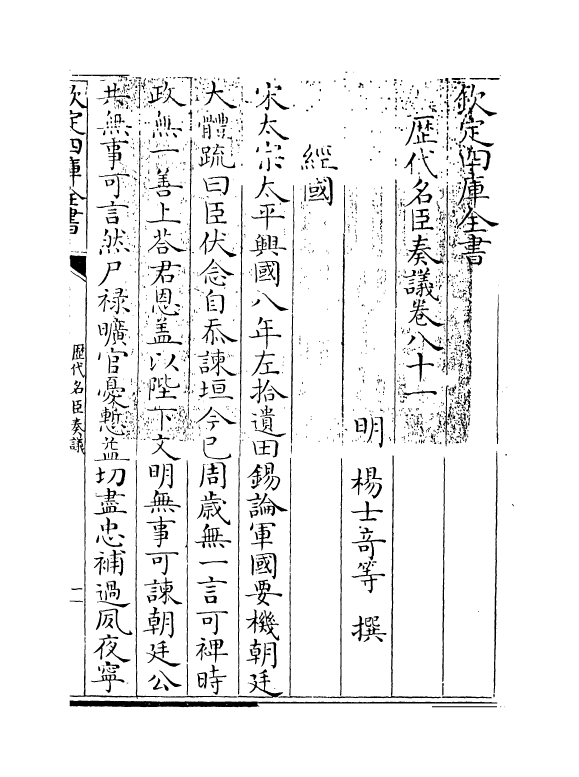 欽定四庫全書
歴代名臣奏議卷八十一
明 楊士竒等 撰
經國
宋太宗太平興國八年左拾遺田錫論軍國要機朝廷
大體疏曰臣伏念自忝諫垣今已周歳無一言可裨時
政無一善上荅君恩盖以陛下文明無事可諫朝廷公
共無事可言然尸禄曠官憂慙益切盡忠補過夙夜寧
欽定四庫全書
歴代名臣奏議
一